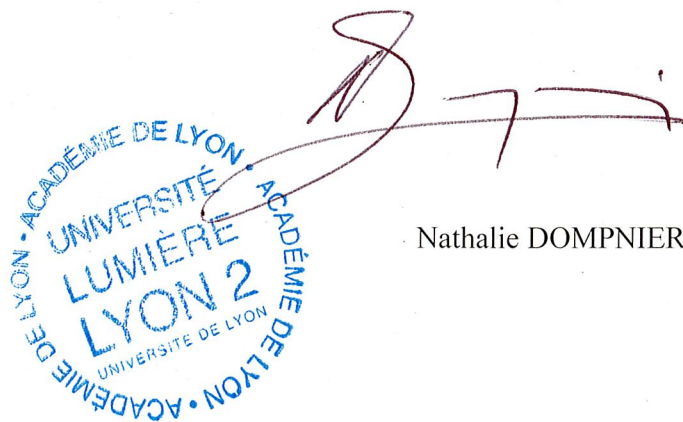 ACADÉMIE DE LYON • ACADÉMIE DE LYON • ACADÉMIE DE LYON •
UNIVERSITÉ
LUMIÈRE
LYON 2
UNIVERSITE DE LYON
Nathalie DOMPNIER